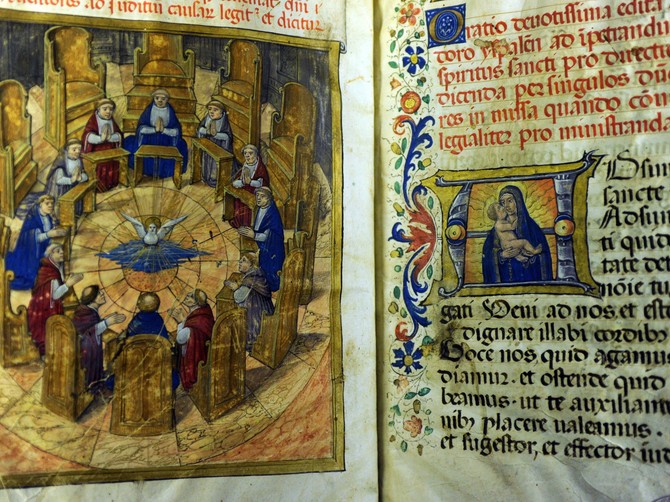 ad Juditiũ causar legitᵗ et dicitur
Oratio deuotissima edita
doro yspaleñ ad ĩpetrandũ
spiritus sancti pro directi
dicenda per singulos
res in missa quando
legaliter pro ministranda
ADsum
sancte
Adsum
ti quid
tate det
monie tu
gati Veni ad nos et est
dignare illabi cordibꝰ
Doce nos quid agamus
diamur· et ostende quid
bramus· ut te auxiliante
nibꝰ placere valeamus·
et sugestor, et effector iud